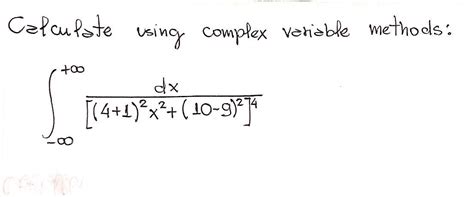 Calculate using complex variable methods:
∫_{-∞}^{+∞} dx / [(4+1)²x²+(10-9)²]⁴